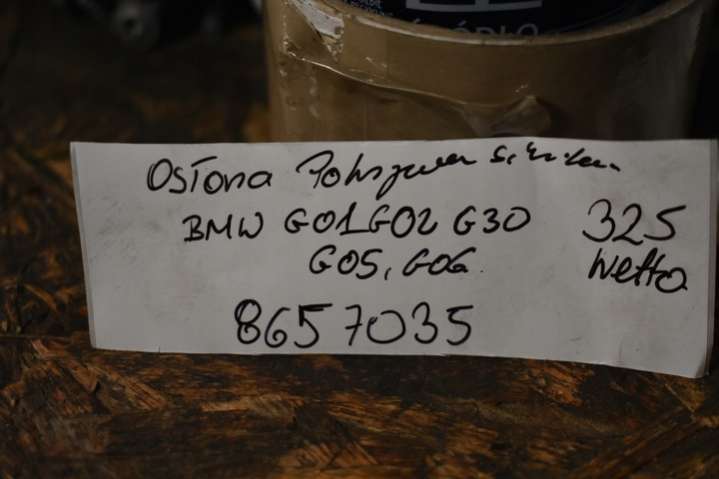 Osłona Pokrywa Silnika
BMW G01 G02 G30 325
G05, G06 Netto
8657035